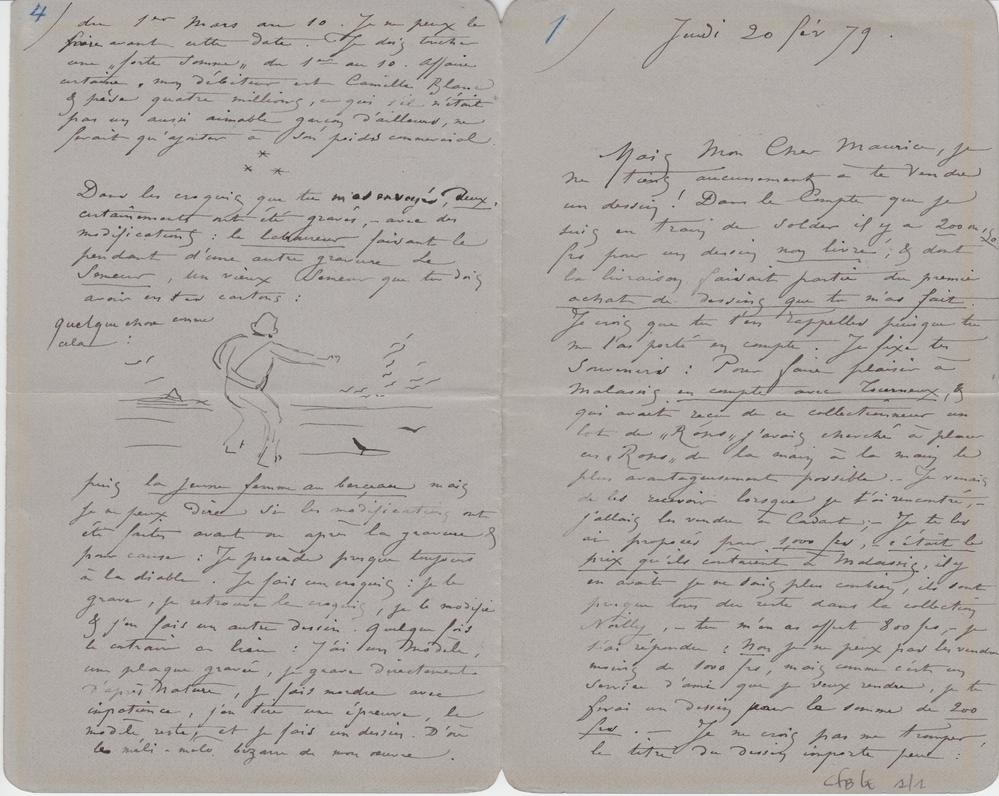 4)
du 1er Mars au 10. Je ne peux le
faire avant cette date. Je dois toucher
une „forte somme„ du 1er au 10. Affaire
certaine, mon débiteur est Camille Blanc
& pèse quatre millions, ce qui s'il n'était
pas un aussi aimable garçon d'ailleurs, ne
ferait qu'ajouter à son poids commercial.
* * *
Dans les croquis que tu m'as envoyés, deux,
certainement ont été gravés, – avec des
modifications : le laboureur faisant le
pendant d'une autre gravure Le
Semeur, un vieux Semeur que tu dois
avoir en tes cartons :
quelque chose comme
cela :
puis la jeune femme au berceau mais
je ne peux dire si les modifications ont
été faites avant ou après la gravure &
pour cause : Je procède presque toujours
à la diable. Je fais un croquis : je le
grave, je retrouve le croquis, je le modifie
& j'en fais un autre dessin. Quelque fois
le contraire a lieu : J'ai un modèle,
une plaque gravée, je grave directement
d'après Nature, je fais mordre avec
impatience, j'en tire une épreuve, le
modèle reste, et je fais un dessin. D'où
le méli-mélo bizarre de mon œuvre.
1)
Jeudi 20 fév 79.
Mais Mon Cher Maurice, je
ne tiens aucunement à te vendre
un dessin ! Dans le Compte que je
suis en train de solder il y a 200
frs pour un dessin non livré ; & dont
la livraison faisait partie du premier
achat de dessins que tu m'as fait.
Je crois que tu t'en rappelles puisque tu
me l'as porté en compte. Je fixe tes
Souvenirs : Pour faire plaisir à
Malassis en compte avec Tourneux, &
qui avait reçu de ce collectionneur un
lot de „Rops„ j'avais cherché à placer
ces „Rops„ de la main à la main le
plus avantageusement possible. – Je venais
de les recevoir lorsque je t'ai rencontré, –
j'allais les vendre à Cadart ; – Je te les
ai proposés pour 1,000 frs, – c'était le
prix qu'ils coûtaient à Malassis, il y
en avait je ne sais plus combien, ils sont
presque tous du reste dans la collection
Noilly, – tu m'en as offert 800 frs, – je
t'ai répondu : Non je ne peux pas les vendre
moins de 1000 frs, mais comme c'est un
service d'ami que je veux rendre, je te
ferai un dessin pour la somme de 200
frs. – Je ne crois pas me tromper,
le titre du dessin importe peu :
1/1